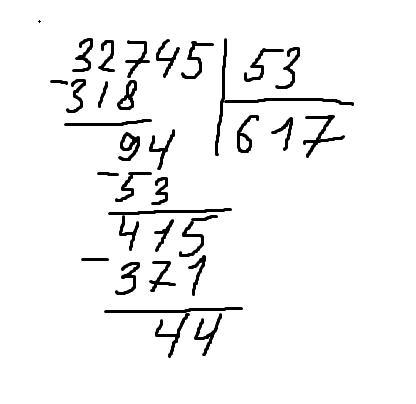 32745 53
-318 617
94
-53
415
-371
44